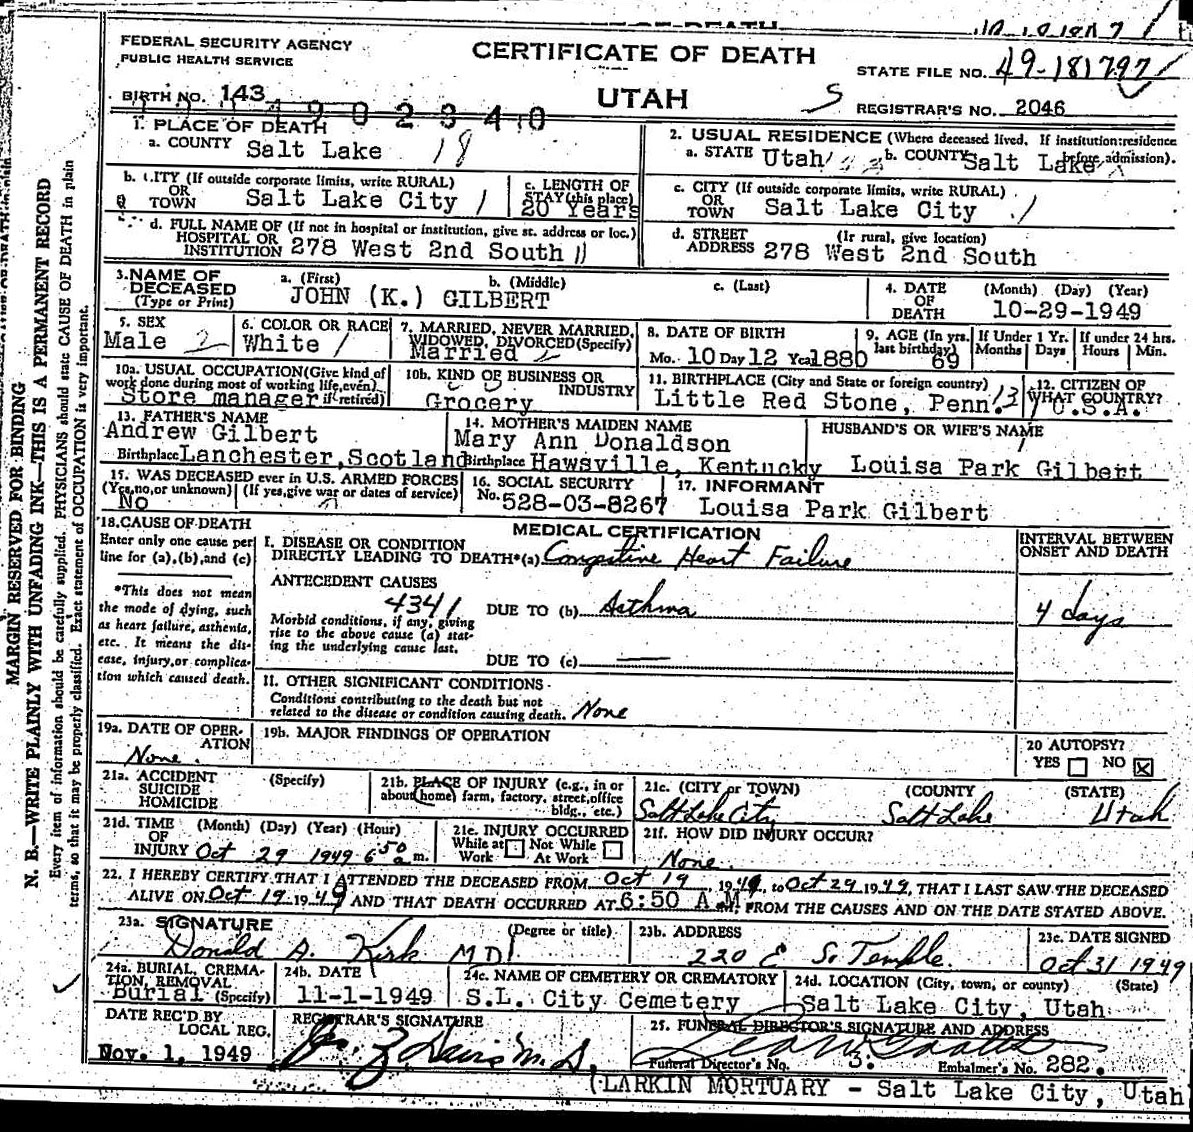 CERTIFICATE OF DEATH
UTAH
FEDERAL SECURITY AGENCY
PUBLIC HEALTH SERVICE
STATE FILE NO. 49-181797
BIRTH NO. 143
4902340
REGISTRAR'S NO. 2046
1. PLACE OF DEATH
a. COUNTY Salt Lake 18
2. USUAL RESIDENCE (Where deceased lived. If institution: residence before admission).
a. STATE Utah b. COUNTY Salt Lake
b. CITY (If outside corporate limits, write RURAL) OR TOWN Salt Lake City 1
c. LENGTH OF STAY (this place) 20 Years
c. CITY (If outside corporate limits, write RURAL) OR TOWN Salt Lake City 1
d. FULL NAME OF (If not in hospital or institution, give st. address or loc.) HOSPITAL OR INSTITUTION 278 West 2nd South
d. STREET ADDRESS (Ir rural, give location) 278 West 2nd South
3. NAME OF DECEASED (Type or Print)
a. (First) b. (Middle) c. (Last)
JOHN (K.) GILBERT
4. DATE OF DEATH (Month) (Day) (Year) 10-29-1949
5. SEX Male 2
6. COLOR OR RACE White 1
7. MARRIED, NEVER MARRIED, WIDOWED, DIVORCED (Specify) Married 2
8. DATE OF BIRTH Mo. 10 Day 12 Year 1880
9. AGE (In yrs. last birthday) 69
If Under 1 Yr. Months Days
If under 24 hrs. Hours Min.
10a. USUAL OCCUPATION (Give kind of work done during most of working life, even if retired) Store manager
10b. KIND OF BUSINESS OR INDUSTRY Grocery
11. BIRTHPLACE (City and State or foreign country) Little Red Stone, Penn. 13
12. CITIZEN OF WHAT COUNTRY? U.S.A.
13. FATHER'S NAME Andrew Gilbert
Birthplace Lanchester, Scotland
14. MOTHER'S MAIDEN NAME Mary Ann Donaldson
Birthplace Hawsville, Kentucky
HUSBAND'S OR WIFE'S NAME
Louisa Park Gilbert
15. WAS DECEASED ever in U.S. ARMED FORCES (Yes, no, or unknown) (If yes, give war or dates of service) No
16. SOCIAL SECURITY No. 528-03-8267
17. INFORMANT Louisa Park Gilbert
18. CAUSE OF DEATH
Enter only one cause per line for (a), (b), and (c)
*This does not mean the mode of dying, such as heart failure, asthenia, etc. It means the disease, injury, or complication which caused death.
MEDICAL CERTIFICATION
INTERVAL BETWEEN ONSET AND DEATH
I. DISEASE OR CONDITION DIRECTLY LEADING TO DEATH* (a) Congestive Heart Failure
ANTECEDENT CAUSES
4341
DUE TO (b) Asthma
4 days
Morbid conditions, if any, giving rise to the above cause (a) stating the underlying cause last.
DUE TO (c)
II. OTHER SIGNIFICANT CONDITIONS
Conditions contributing to the death but not related to the disease or condition causing death. None
19a. DATE OF OPERATION None.
19b. MAJOR FINDINGS OF OPERATION
20 AUTOPSY? YES NO X
21a. ACCIDENT SUICIDE HOMICIDE (Specify)
21b. PLACE OF INJURY (e.g., in or about home, farm, factory, street, office bldg., etc.)
21c. (CITY or TOWN) (COUNTY (STATE)
Salt Lake City Salt Lake Utah
21d. TIME OF INJURY (Month) (Day) (Year) (Hour) Oct 29 1949 6 50 a m.
21e. INJURY OCCURRED While at Work Not While At Work
21f. HOW DID INJURY OCCUR? None.
22. I HEREBY CERTIFY THAT I ATTENDED THE DECEASED FROM Oct 19, 1949, to Oct 29 1949, THAT I LAST SAW THE DECEASED
ALIVE ON Oct 19 1949 AND THAT DEATH OCCURRED AT 6:50 A.M. FROM THE CAUSES AND ON THE DATE STATED ABOVE.
23a. SIGNATURE (Degree or title) Donald A. Kirk M D
23b. ADDRESS 220 E So Temple.
23c. DATE SIGNED Oct 31 1949
24a. BURIAL, CREMATION, REMOVAL (Specify) Burial
24b. DATE 11-1-1949
24c. NAME OF CEMETERY OR CREMATORY S.L. City Cemetery
24d. LOCATION (City, town, or county) (State) Salt Lake City, Utah
DATE REC'D BY LOCAL REG. Nov. 1, 1949
REGISTRAR'S SIGNATURE
M.D.
25. FUNERAL DIRECTOR'S SIGNATURE AND ADDRESS
Funeral Director's No. 3. Embalmer's No. 282.
(LARKIN MORTUARY - Salt Lake City, Utah
MARGIN RESERVED FOR BINDING
N. B.—WRITE PLAINLY WITH UNFADING INK—THIS IS A PERMANENT RECORD
Every item of information should be carefully supplied. PHYSICIANS should state CAUSE OF DEATH in plain
terms, so that it may be properly classified. Exact statement of OCCUPATION is very important.